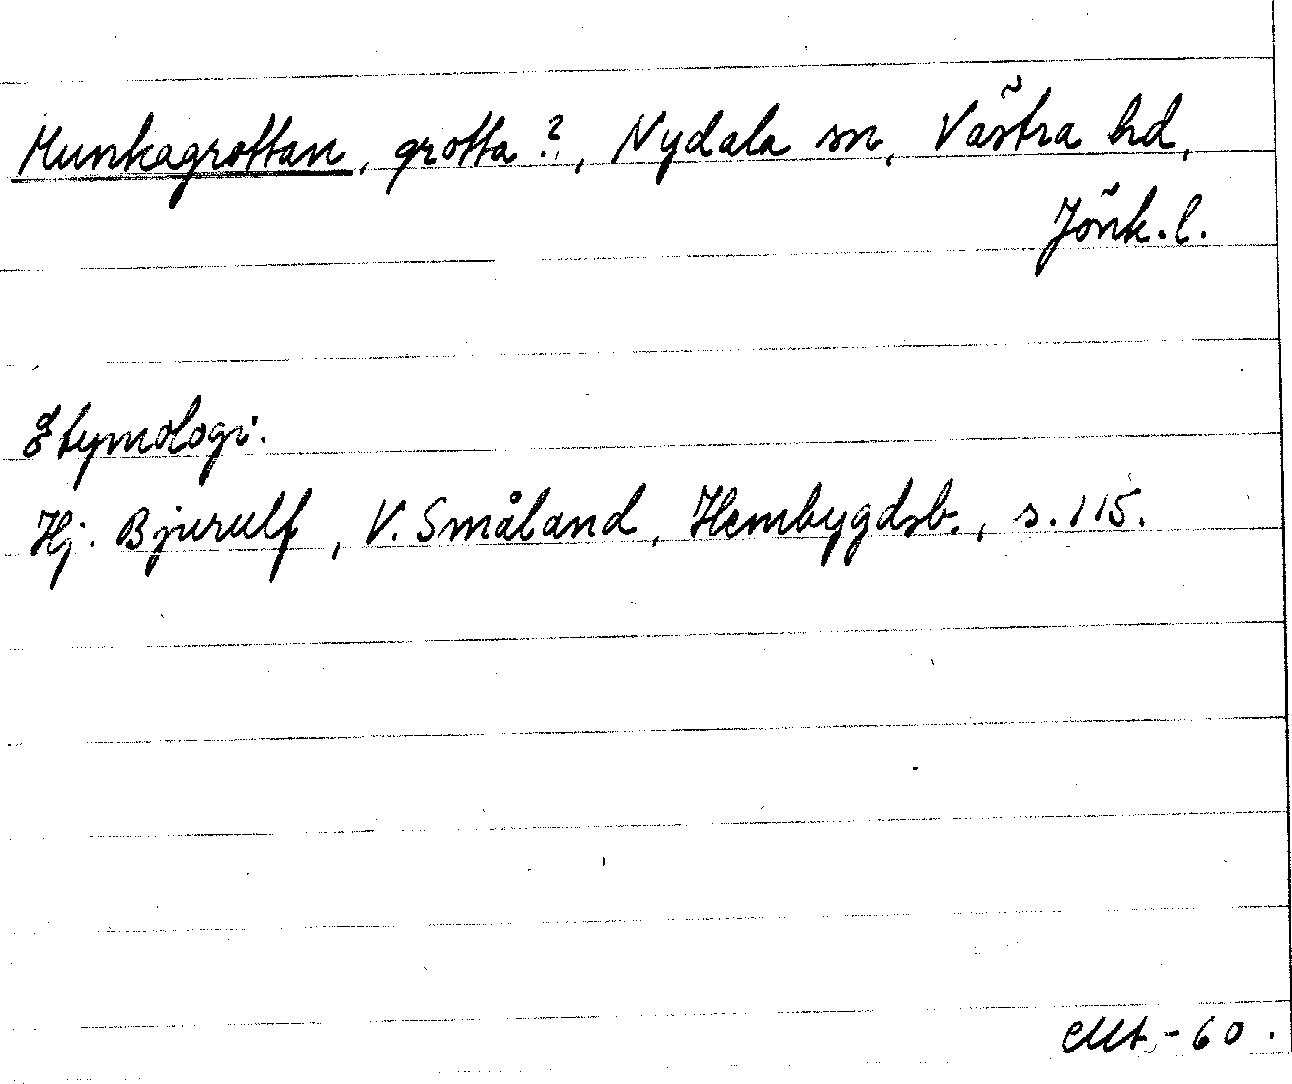 Munkagrottan, grotta?, Nydala sn, Västra hd,
Jönk. l.
Etymologi.
Hj. Bjurulf, V. Småland, Hembygdsb., s. 115.
-60.